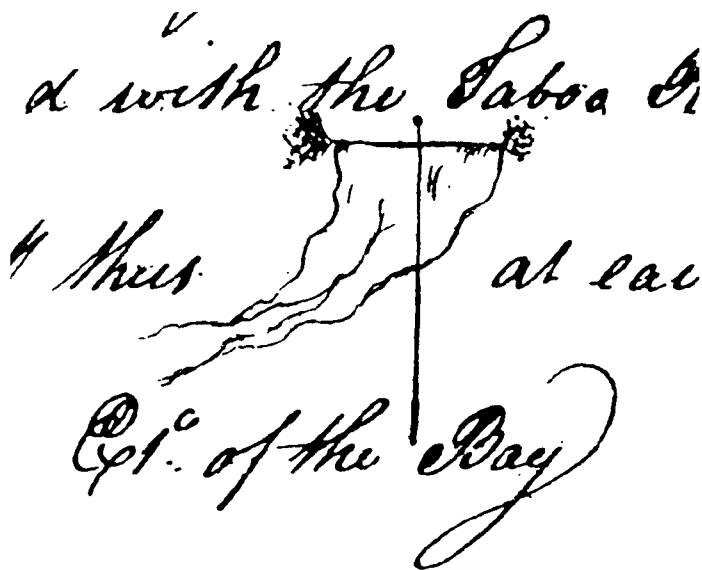 d with the Taboa
thus at
Ext.c of the Bay